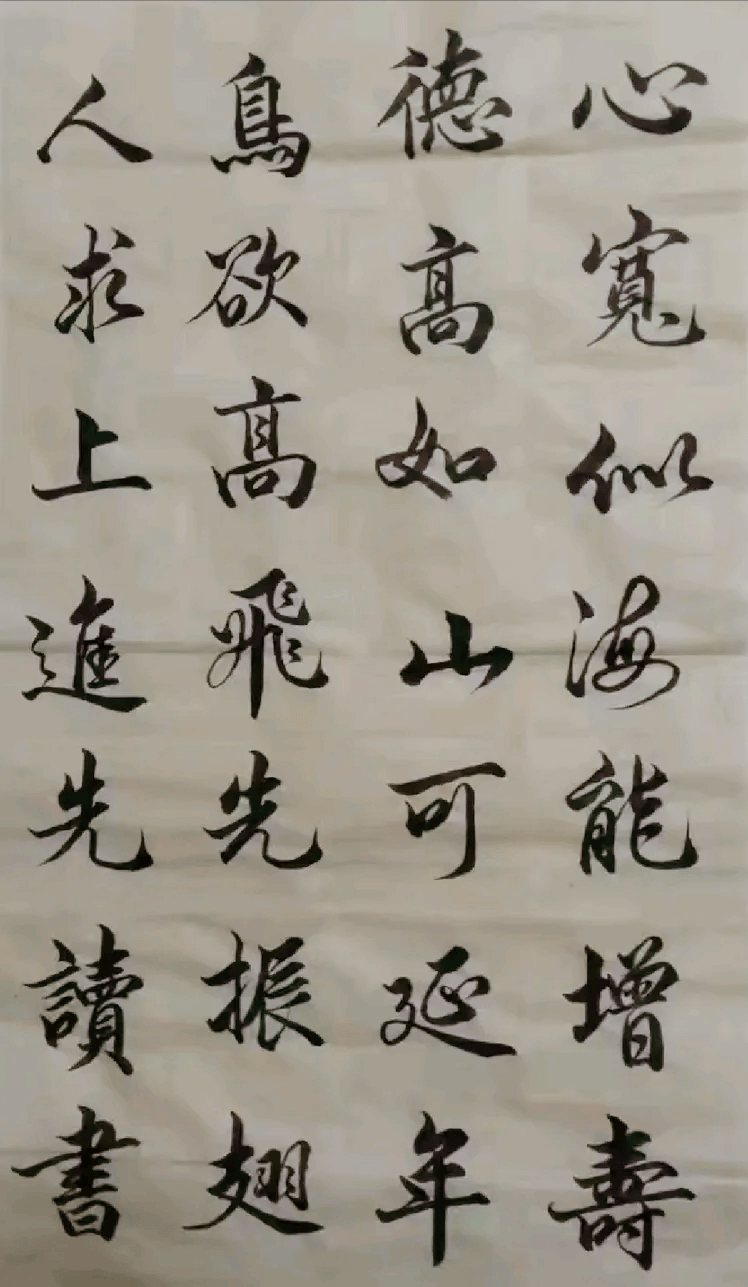 心寬似海能增壽
德高如山可延年
鳥欲高飛先振翅
人求上進先讀書